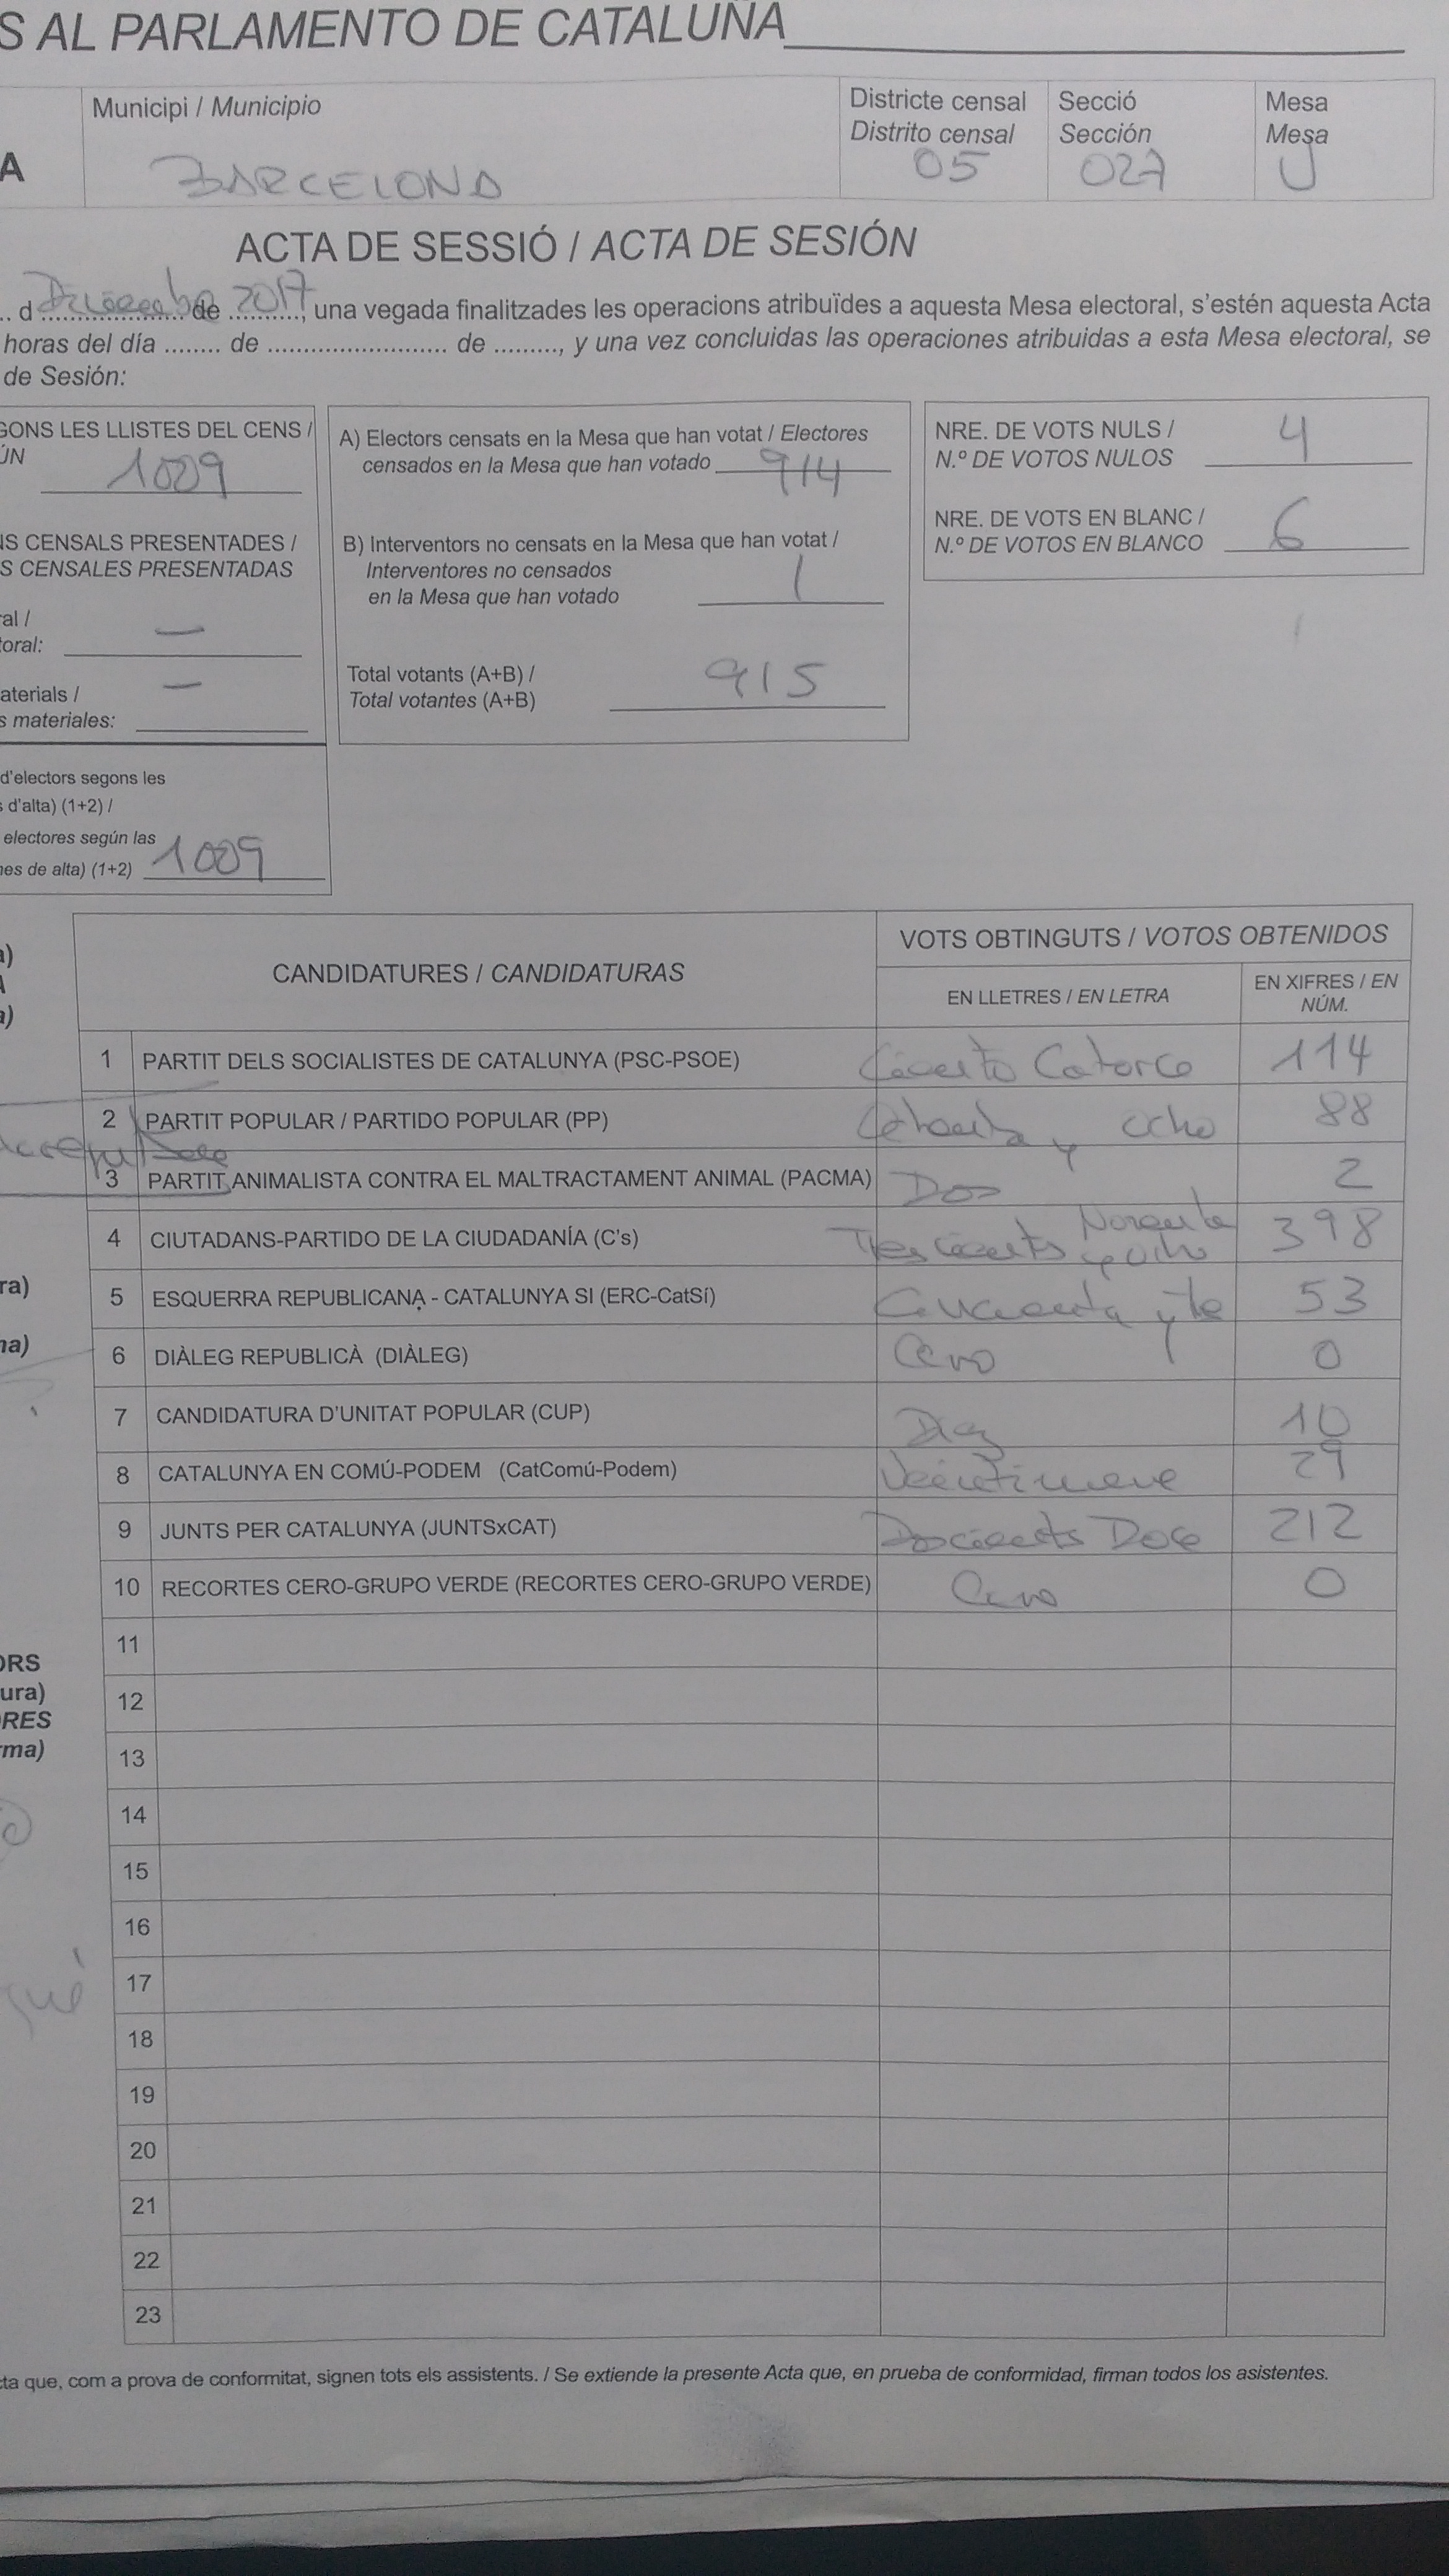 S AL PARLAMENTO DE CATALUÑA
A
Municipi / Municipio
BARCELONA
Districte censal
Distrito censal
05
Secció
Sección
027
Mesa
Mesa
U
ACTA DE SESSIÓ / ACTA DE SESIÓN
.. d Diciembre de 2017, una vegada finalitzades les operacions atribuïdes a aquesta Mesa electoral, s'estén aquesta Acta
horas del día ........ de .......................... de ........., y una vez concluidas las operaciones atribuidas a esta Mesa electoral, se
de Sesión:
GONS LES LLISTES DEL CENS /
ÚN
1009
NS CENSALS PRESENTADES /
S CENSALES PRESENTADAS
ral /
toral: —
aterials /
s materiales: —
d'electors segons les
s d'alta) (1+2) /
electores según las
nes de alta) (1+2) 1009
A) Electors censats en la Mesa que han votat / Electores
censados en la Mesa que han votado 914
B) Interventors no censats en la Mesa que han votat /
Interventores no censados
en la Mesa que han votado 1
Total votants (A+B) /
Total votantes (A+B) 915
NRE. DE VOTS NULS /
N.º DE VOTOS NULOS 4
NRE. DE VOTS EN BLANC /
N.º DE VOTOS EN BLANCO 6
a)
A
a)
ra)
na)
ORS
ura)
ORES
rma)
qué
CANDIDATURES / CANDIDATURAS
VOTS OBTINGUTS / VOTOS OBTENIDOS
EN LLETRES / EN LETRA
EN XIFRES / EN
NÚM.
1 PARTIT DELS SOCIALISTES DE CATALUNYA (PSC-PSOE) Ciento Catorce 114
2 PARTIT POPULAR / PARTIDO POPULAR (PP) Ochenta y ocho 88
3 PARTIT ANIMALISTA CONTRA EL MALTRACTAMENT ANIMAL (PACMA) Dos 2
4 CIUTADANS-PARTIDO DE LA CIUDADANÍA (C's) Trescientos Noventa y ocho 398
5 ESQUERRA REPUBLICANA - CATALUNYA SI (ERC-CatSí) Cincuenta y tres 53
6 DIÀLEG REPUBLICÀ (DIÀLEG) Cero 0
7 CANDIDATURA D'UNITAT POPULAR (CUP) Diez 10
8 CATALUNYA EN COMÚ-PODEM (CatComú-Podem) Veintinueve 29
9 JUNTS PER CATALUNYA (JUNTSxCAT) Doscientos Doce 212
10 RECORTES CERO-GRUPO VERDE (RECORTES CERO-GRUPO VERDE) Cero 0
11
12
13
14
15
16
17
18
19
20
21
22
23
cta que, com a prova de conformitat, signen tots els assistents. / Se extiende la presente Acta que, en prueba de conformidad, firman todos los asistentes.